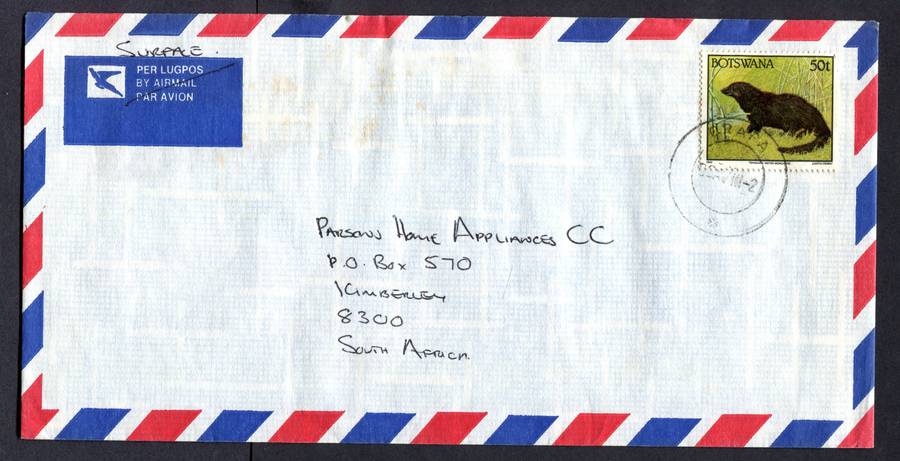 SURFACE.
PER LUGPOS
BY AIRMAIL
PAR AVION
BOTSWANA 50t
PARSONN HOME APPLIANCES CC
P.O. BOX 570
KIMBERLEY
8300
SOUTH AFRICA